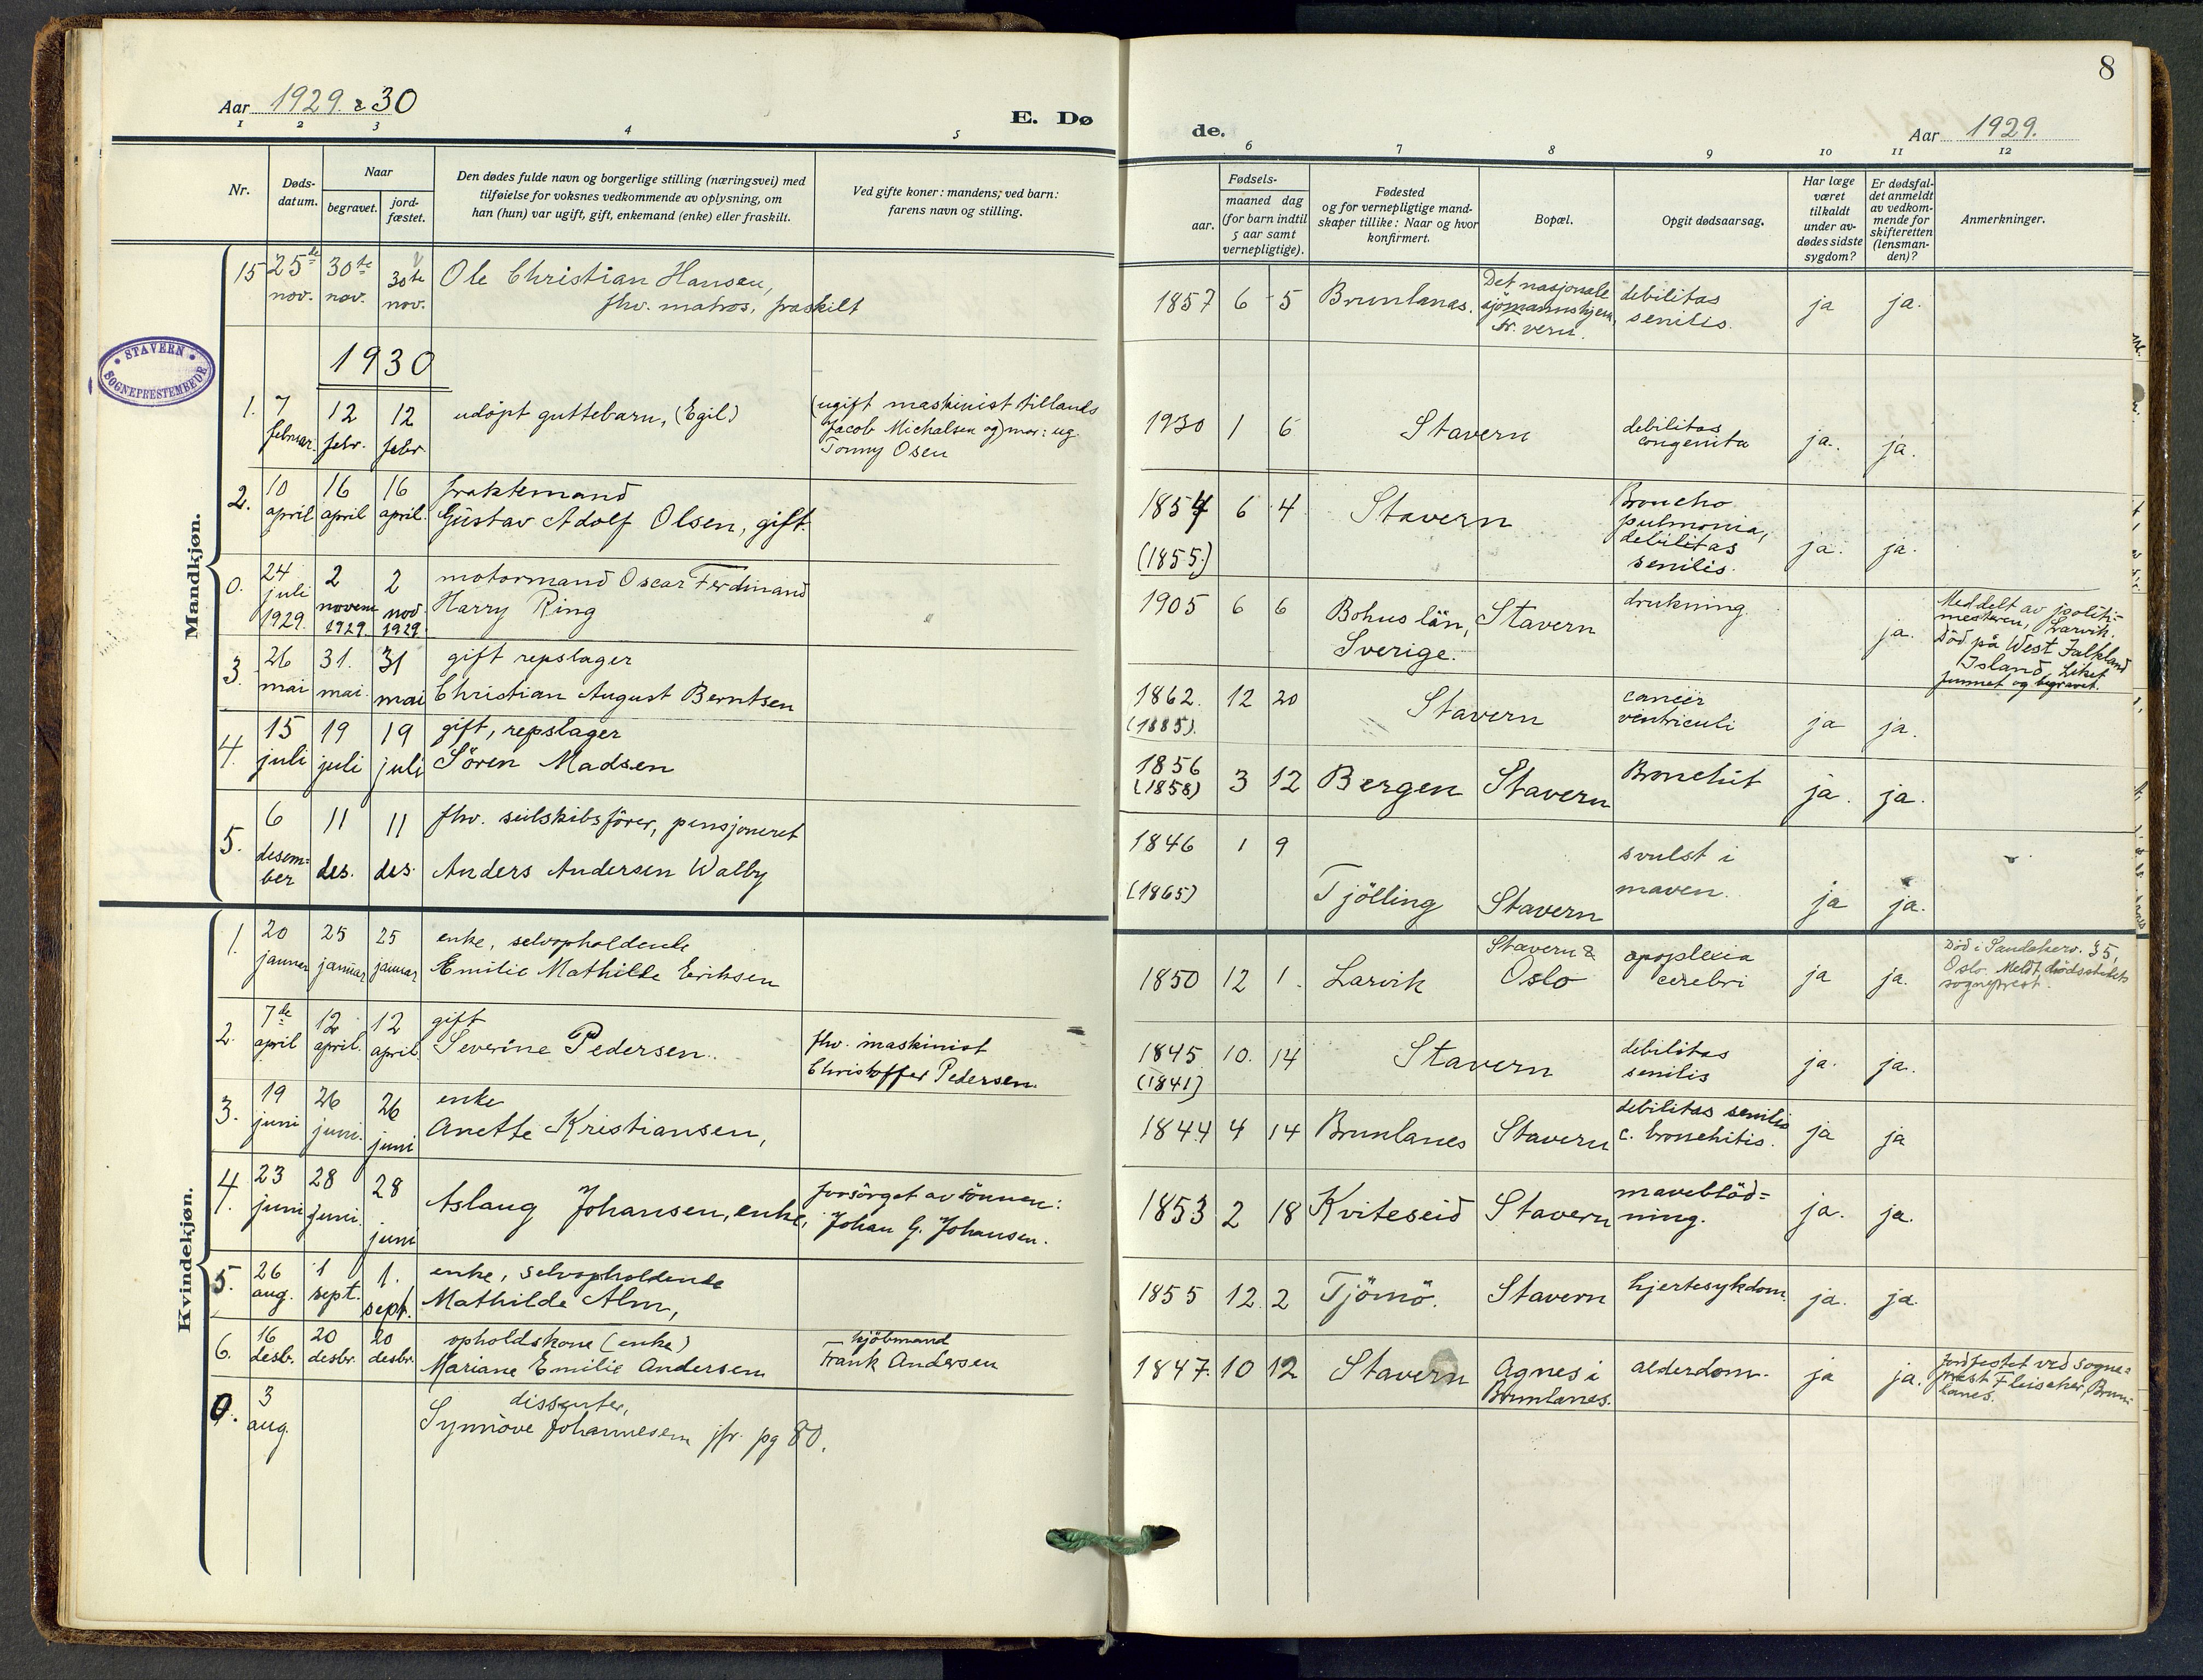 Aar 1929 & 30
E. Dø
1 2 3 4 5
Nr.
Døds-
datum.
Naar
begravet.
jord-
fæstet.
Den dødes fulde navn og borgerlige stilling (næringsvei) med
tilføielse for voksnes vedkommende av oplysning, om
han (hun) var ugift, gift, enkemand (enke) eller fraskilt.
Ved gifte koner: mandens; ved barn:
farens navn og stilling.
STAVERN
SOGNEPRESTEMBEDE
Mandkjøn.
15 25de nov. 30te nov. 30te nov. Ole Christian Hansen,
fhv. matros, fraskilt
1930
1. 7 februar. 12 febr. 12 febr. udöpt guttebarn, (Egil)
(ugift maskinist tillands
Jacob Michalsen og) mor: ug.
Tonny Osen
2. 10 april 16 april 16 april. fraktemand
Gustav Adolf Olsen, gift.
0. 24 juli 1929. 2 novem 1929. 2 nov. 1929. motormand Oscar Ferdinand
Harry Ring
3. 26 mai 31. mai. 31 mai gift repslager
Christian August Berntsen
4. 15 juli 19 juli 19 juli gift, repslager
Sören Madsen
5. 6 desem=
ber 11 des. 11 des. fhv. seilskibsförer, pensjoneret
Anders Andersen Walby
Kvindekjøn.
1. 20 januar 25 januar 25 januar enke, selvopholdende
Emilie Mathilde Eriksen
2. 7de april 12 april. 12 april gift
Severine Pedersen.
fhv. maskinist
Christoffer Pedersen.
3. 19 juni 26 juni. 26 juni enke
Anette Kristiansen,
4. 23 juni 28 juni. 28 juni Aslaug Johansen, enke,
forsörget av sönnen:
Johan G. Johansen.
5. 26 aug. 1 sept. 1. sept. enke, selvopholdende
Mathilde Alm,
6. 16 desbr. 20 desbr. 20 desbr. opholdskone (enke)
Mariane Emilie Andersen
kjöbmand
Frank Andersen
0. 3 aug. dissenter,
Synnöve Johannesen jfr. pg 80.
8
de.
Aar 1929.
6 7 8 9 10 11 12
Fødsels-
aar.
maaned dag
(for barn indtil
5 aar samt
vernepligtige).
Fødested
og for vernepligtige mand-
skaper tillike: Naar og hvor
konfirmert.
Bopæl.
Opgit dødsaarsag.
Har læge
været
tilkaldt
under av-
dødes sidste
sygdom?
Er dødsfal-
det anmeldt
av vedkom-
mende for
skifteretten
(lensman-
den)?
Anmerkninger.
1857 6 5 Brunlanes. Det nasjonale
sjömannshjem,
fr. vern. debilitas
senilis. ja ja.
1930 1 6 Stavern debilitas
congenita ja. ja.
1854 (1855.) 6 4 Stavern Broncho
pulmonia,
debilitas
senilis. ja. ja.
1905 6 6 Bohus län,
Sverige. Stavern drukning. ja.
Meddelt av politi=
mesteren, Larvik.
Död på West Falkland
Island. Liket
funnet og begravet.
1862. (1885). 12 20 Stavern cancer
ventriculi ja ja.
1856 (1858) 3 12 Bergen Stavern Bronchit ja. ja.
1846 (1865) 1 9 Tjölling Stavern svulst i
maven. ja ja.
1850 12 1. Larvik Stavern &
Oslo apoplexia
cerebri ja ja.
Död i Sandakerv. 35,
Oslo. Meldt dödsstedets
sogneprest.
1845 (1841) 10. 14 Stavern debilitas
senilis ja. ja.
1844 4 14 Brunlanes Stavern debilitas senilis
c. bronchitis. ja ja
1853 2 18 Kviteseid Stavern maveblöd=
ning. ja. ja.
1855 12. 2 Tjömö. Stavern hjertesykdom. ja. ja.
1847. 10 12 Stavern Agnes i
Brunlanes. alderdom. ja ja.
Jordfestet ved sogne=
prest Fleischer, Brun=
lanes.